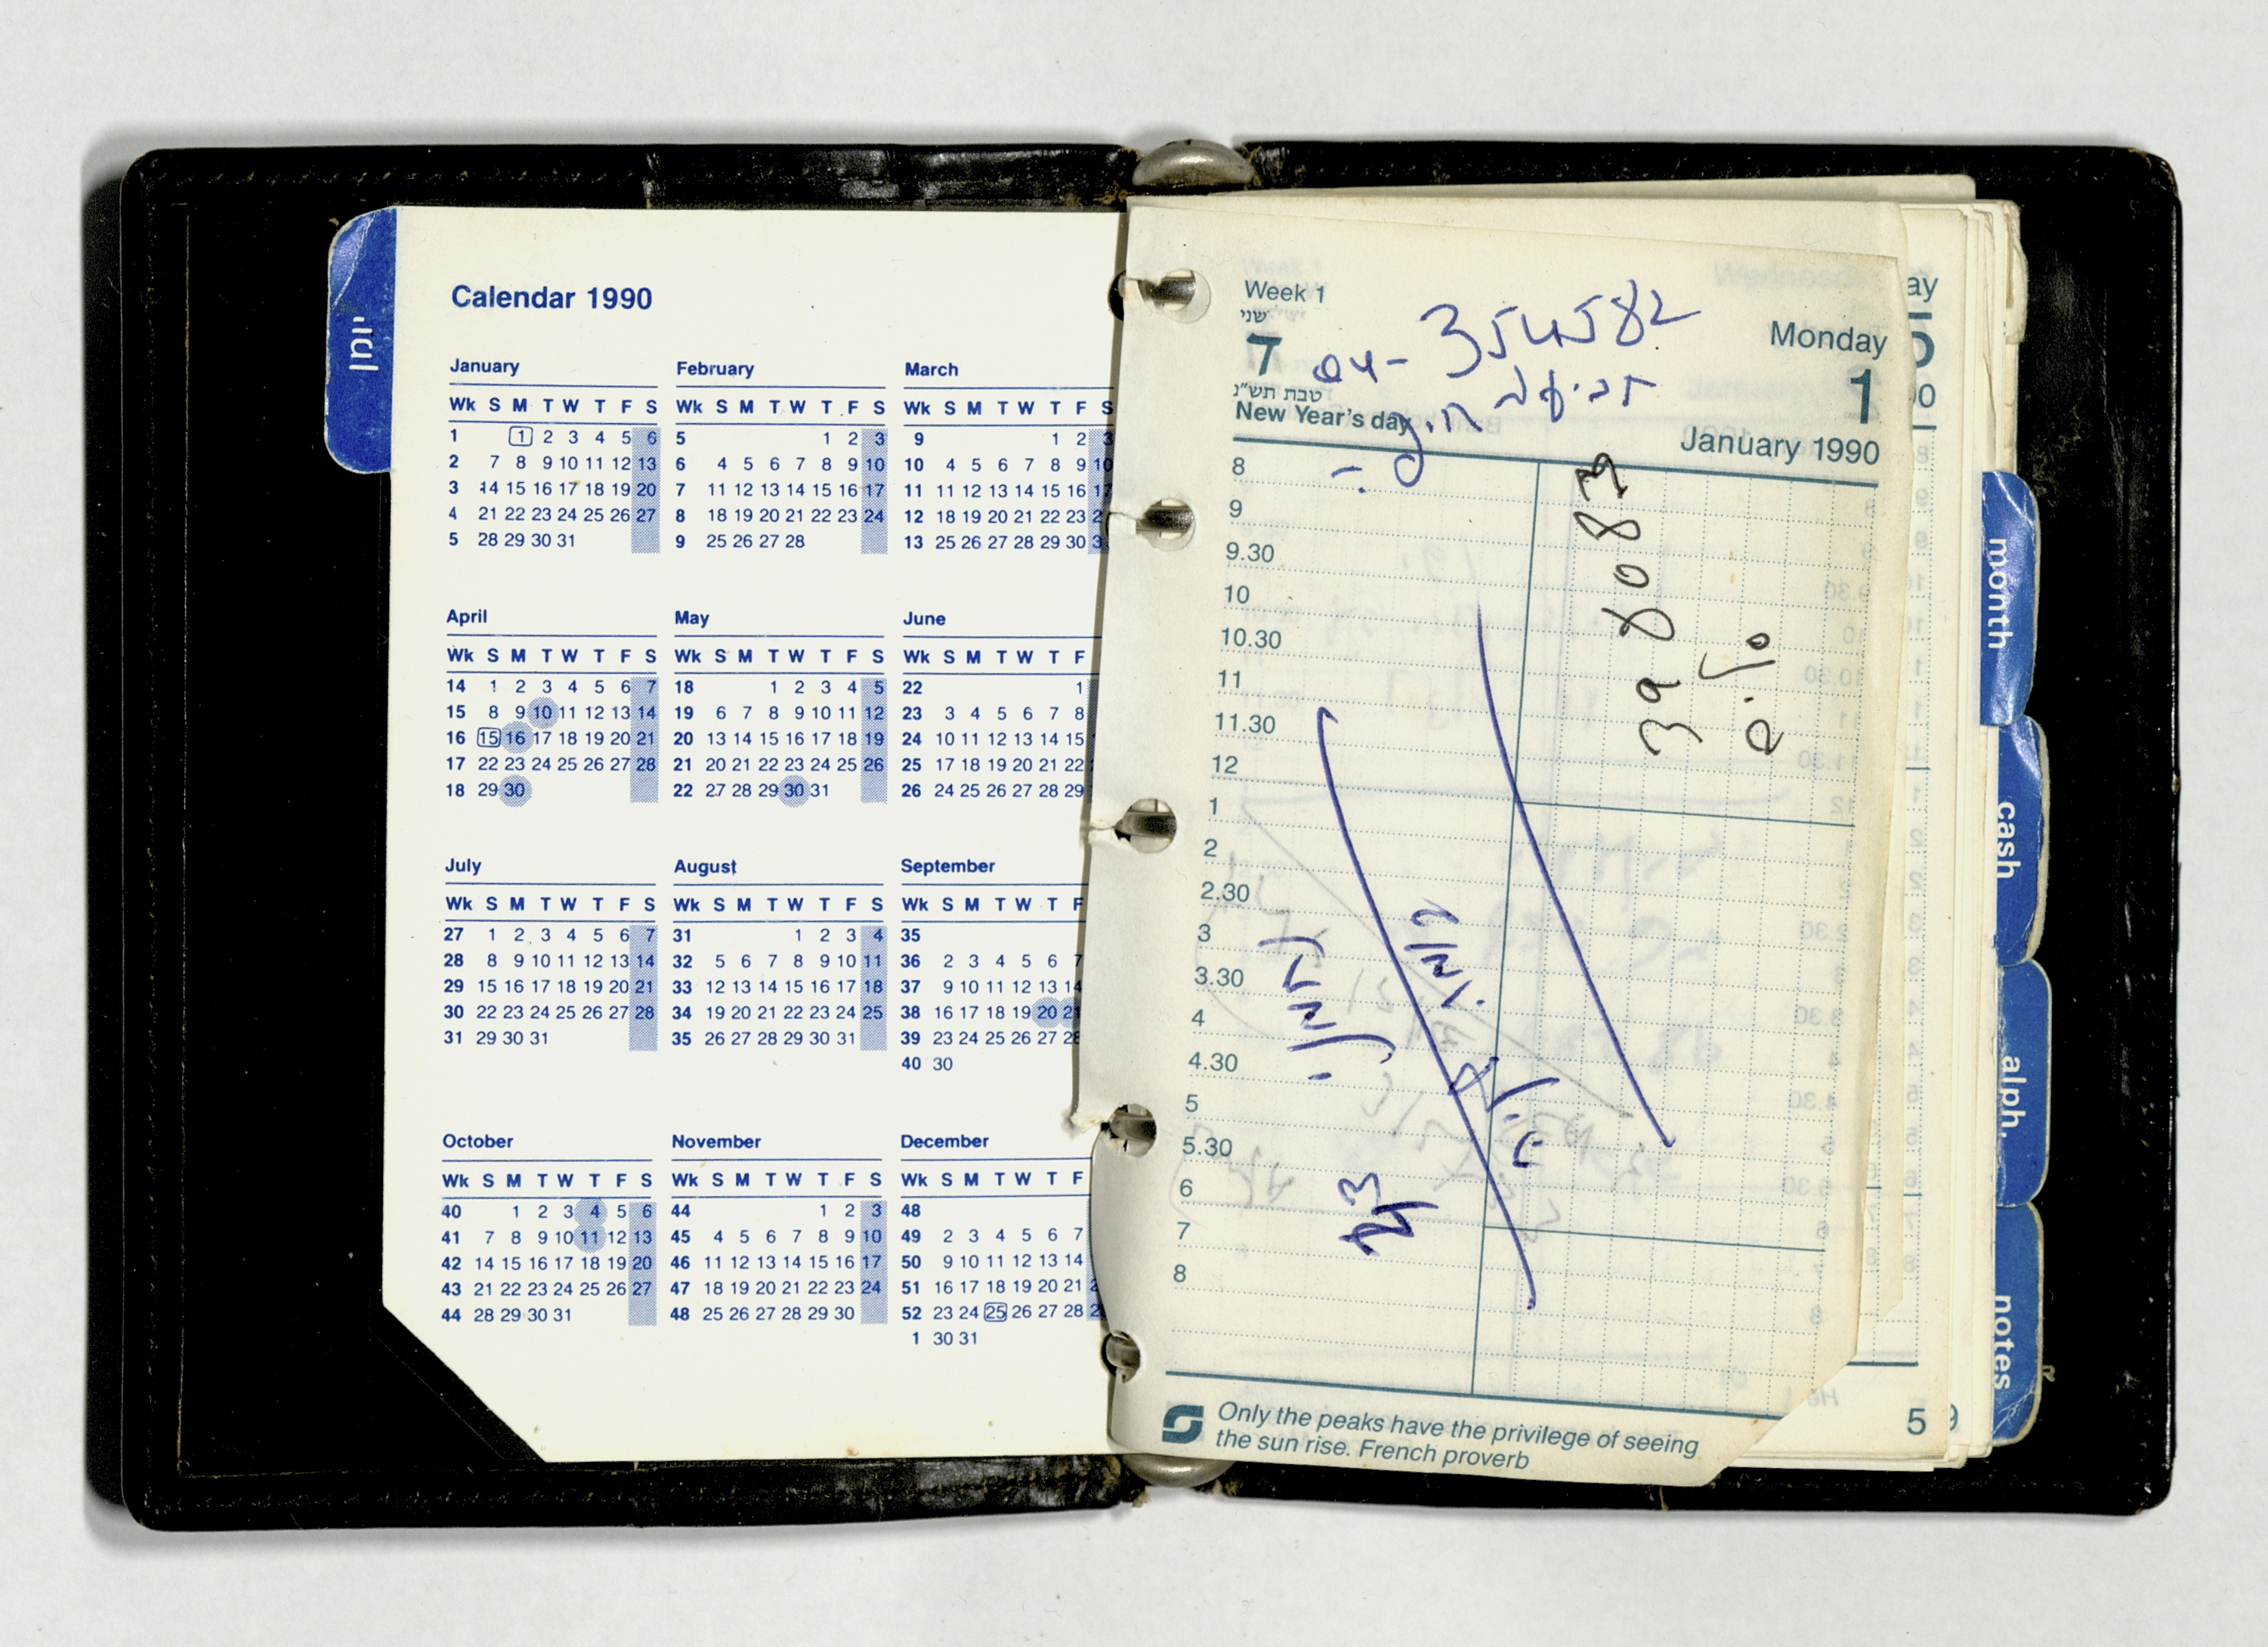 יומן
Calendar 1990
January February March
Wk S M T W T F S Wk S M T W T F S Wk S M T W T F S
1 1 2 3 4 5 6 5 1 2 3 9 1 2 3
2 7 8 9 10 11 12 13 6 4 5 6 7 8 9 10 10 4 5 6 7 8 9 10
3 14 15 16 17 18 19 20 7 11 12 13 14 15 16 17 11 11 12 13 14 15 16 17
4 21 22 23 24 25 26 27 8 18 19 20 21 22 23 24 12 18 19 20 21 22 23 2
5 28 29 30 31 9 25 26 27 28 13 25 26 27 28 29 30 3
April May June
Wk S M T W T F S Wk S M T W T F S Wk S M T W T F
14 1 2 3 4 5 6 7 18 1 2 3 4 5 22 1
15 8 9 10 11 12 13 14 19 6 7 8 9 10 11 12 23 3 4 5 6 7 8
16 15 16 17 18 19 20 21 20 13 14 15 16 17 18 19 24 10 11 12 13 14 15
17 22 23 24 25 26 27 28 21 20 21 22 23 24 25 26 25 17 18 19 20 21 22
18 29 30 22 27 28 29 30 31 26 24 25 26 27 28 29
July August September
Wk S M T W T F S Wk S M T W T F S Wk S M T W T F
27 1 2 3 4 5 6 7 31 1 2 3 4 35
28 8 9 10 11 12 13 14 32 5 6 7 8 9 10 11 36 2 3 4 5 6 7
29 15 16 17 18 19 20 21 33 12 13 14 15 16 17 18 37 9 10 11 12 13 14
30 22 23 24 25 26 27 28 34 19 20 21 22 23 24 25 38 16 17 18 19 20 21
31 29 30 31 35 26 27 28 29 30 31 39 23 24 25 26 27 28
40 30
October November December
Wk S M T W T F S Wk S M T W T F S Wk S M T W T F
40 1 2 3 4 5 6 44 1 2 3 48
41 7 8 9 10 11 12 13 45 4 5 6 7 8 9 10 49 2 3 4 5 6 7
42 14 15 16 17 18 19 20 46 11 12 13 14 15 16 17 50 9 10 11 12 13 14
43 21 22 23 24 25 26 27 47 18 19 20 21 22 23 24 51 16 17 18 19 20 21 2
44 28 29 30 31 48 25 26 27 28 29 30 52 23 24 25 26 27 28 2
1 30 31
Week 1
שני
7
טבת תש"נ
New Year's day
04- 354582
Monday
1
January 1990
8
9
9.30
10
10.30
11
11.30
12
1
2
2.30
3
3.30
4
4.30
5
5.30
6
7
8
398083
Only the peaks have the privilege of seeing
the sun rise. French proverb
ay
5
month
cash
alph.
notes